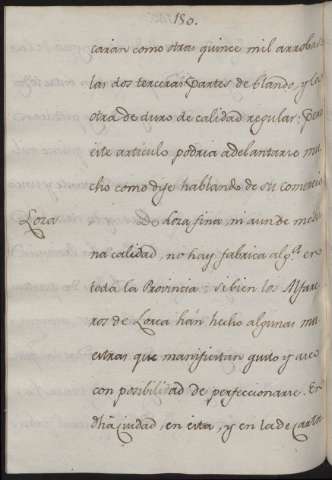 180.
carán como otras quince mil arrobas
las dos terceras partes de blando, y la
otra de duro de calidad regular: Pero
este artículo podria adelantarse mu
cho como dije hablando de su comercio
Loza
De loza fina, ni aun de media
na calidad, no hay fabrica alg.ª en
toda la Provincia: si bien los Alfare
ros de Lorca hán hecho algunas mu
estras que manifiestan gusto y aseo
con posibilidad de perfeccionarse. En
dha Ciudad, en esta, y en la de Carta